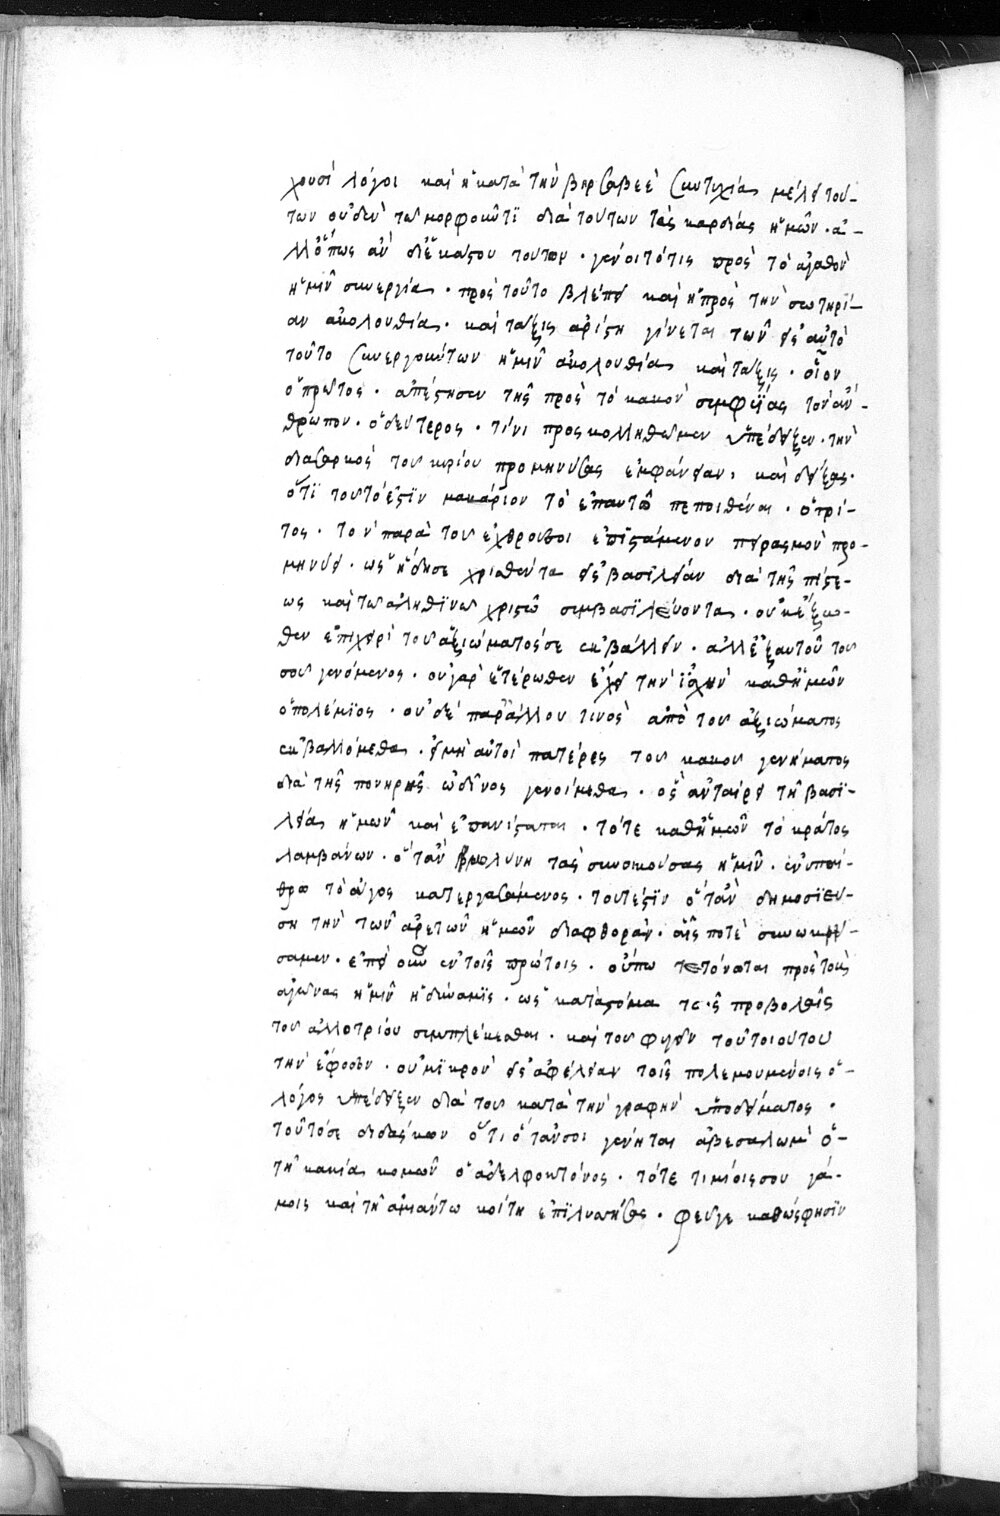 χουσί λόγοι καὶ ἡ κατὰ τὴν βηρσαβεὲ συντυχία, μέλει τού-
των οὐδὲν τῶ μορφοῦντι διὰ τούτων τὰς καρδίας ἡμῶν · ἀ-
λλ' ὅπως ἂν δι' ἑκάστου τούτων · γένοιτό τις πρὸς τὸ ἀγαθὸν
ἡμῖν συνεργία · πρὸς τοῦτο βλέπει καὶ ἡ πρὸς τὴν σωτηρί-
αν ἀκολουθία · καὶ τάξις ἀρίστη γίνεται τῶν εἰς αὐτὸ
τοῦτο συνεργούντων ἡμῖν ἀκολουθία καὶ τάξις · οἷον
ὁ πρῶτος · ἀπέστησεν τῆς πρὸς τὸ κακὸν συμφυΐας τὸν ἄν-
θρωπον · ὁ δεύτερος · τίνι προσκολληθῶμεν ὑπέδειξεν · τὴν
διὰ σαρκὸς τοῦ κυρίου προμηνύσας ἐμφάνειαν, καὶ δείξας ·
ὅτι τοῦτό ἐστιν μακάριον τὸ ἐπ' αυτῶ πεποιθέναι · ὁ τρί-
τος · τὸν παρὰ τοῦ ἐχθροῦ σοι ἐπιστάμενον πειρασμὸν προ-
μηνύει · ὡς ἤδη σε χρισθέντα εἰς βασιλείαν διὰ τῆς πίστε-
ως καὶ τῶ ἀληθινῶ χριστῶ συμβασιλεύοντα · οὐκ ἔξω-
θεν ἐπιχειρεῖ τοῦ ἀξιώματός σε ἐκβάλλειν · ἀλλ' ἐξ αὐτοῦ τοῦ
σοῦ γενόμενος · οὐ γὰρ ἑτέρωθεν ἔχει τὴν ἰσχὺν καθ' ἡμῶν
ὁ πολέμιος · οὐδὲ παρ' ἄλλου τινὸς ἀπὸ τοῦ ἀξιώματος
ἐκβαλλόμεθα · εἰ μὴ αὐτοὶ πατέρες τοῦ κακοῦ γενήματος
διὰ τῆς πονηρᾶς ὠδῖνος γενοίμεθα · ὃς ἀνταίρει τῆ βασι-
λεία ἡμῶν καὶ ἐπανίσταται · τότε καθ' ἡμῶν τὸ κράτος
λαμβάνων · ὅταν μολύνη τὰς συνοικούσας ἡμῖν · ἐν ὑπαί-
θρω τὸ ἄγος κατεργασάμενος · τουτέστιν ὅταν δημοσιεύ-
ση τὴν τῶν ἀρετῶν ἡμῶν διαφθοράν · αἷς ποτὲ συνωκή-
σαμεν · ἐπεὶ οὖν ἐν τοῖς πρώτοις · οὔπω τετόνωται πρὸς τοὺς
ἀγῶνας ἡμῖν ἡ δύναμις · ὡς κατὰ στόμα τ<ai>ς προβολῆς
τοῦ ἀλλοτρίου συμπλέκεσθαι · καὶ τὸ φυγεῖν τοῦ τοιούτου
τὴν ἔφοδον · οὐ μικρὸν εἰς ἀφέλειαν τοῖς πολεμουμένοις ὁ
λόγος ὑπέδειξεν διὰ τοῦ κατὰ τὴν γραφὴν ὑποδείγματος ·
τοῦτό σε διδάσκων ὅτι ὅταν σοι γένηται ἀβεσαλὼμ ὁ
τῆ κακία κομῶν ὁ ἀδελφοκτόνος · τότε τιμίοις σου γά-
μοις καὶ τῆ ἀμιάντω κοίτη ἐπιλυσσήσας · φεῦγε καθώς φησιν